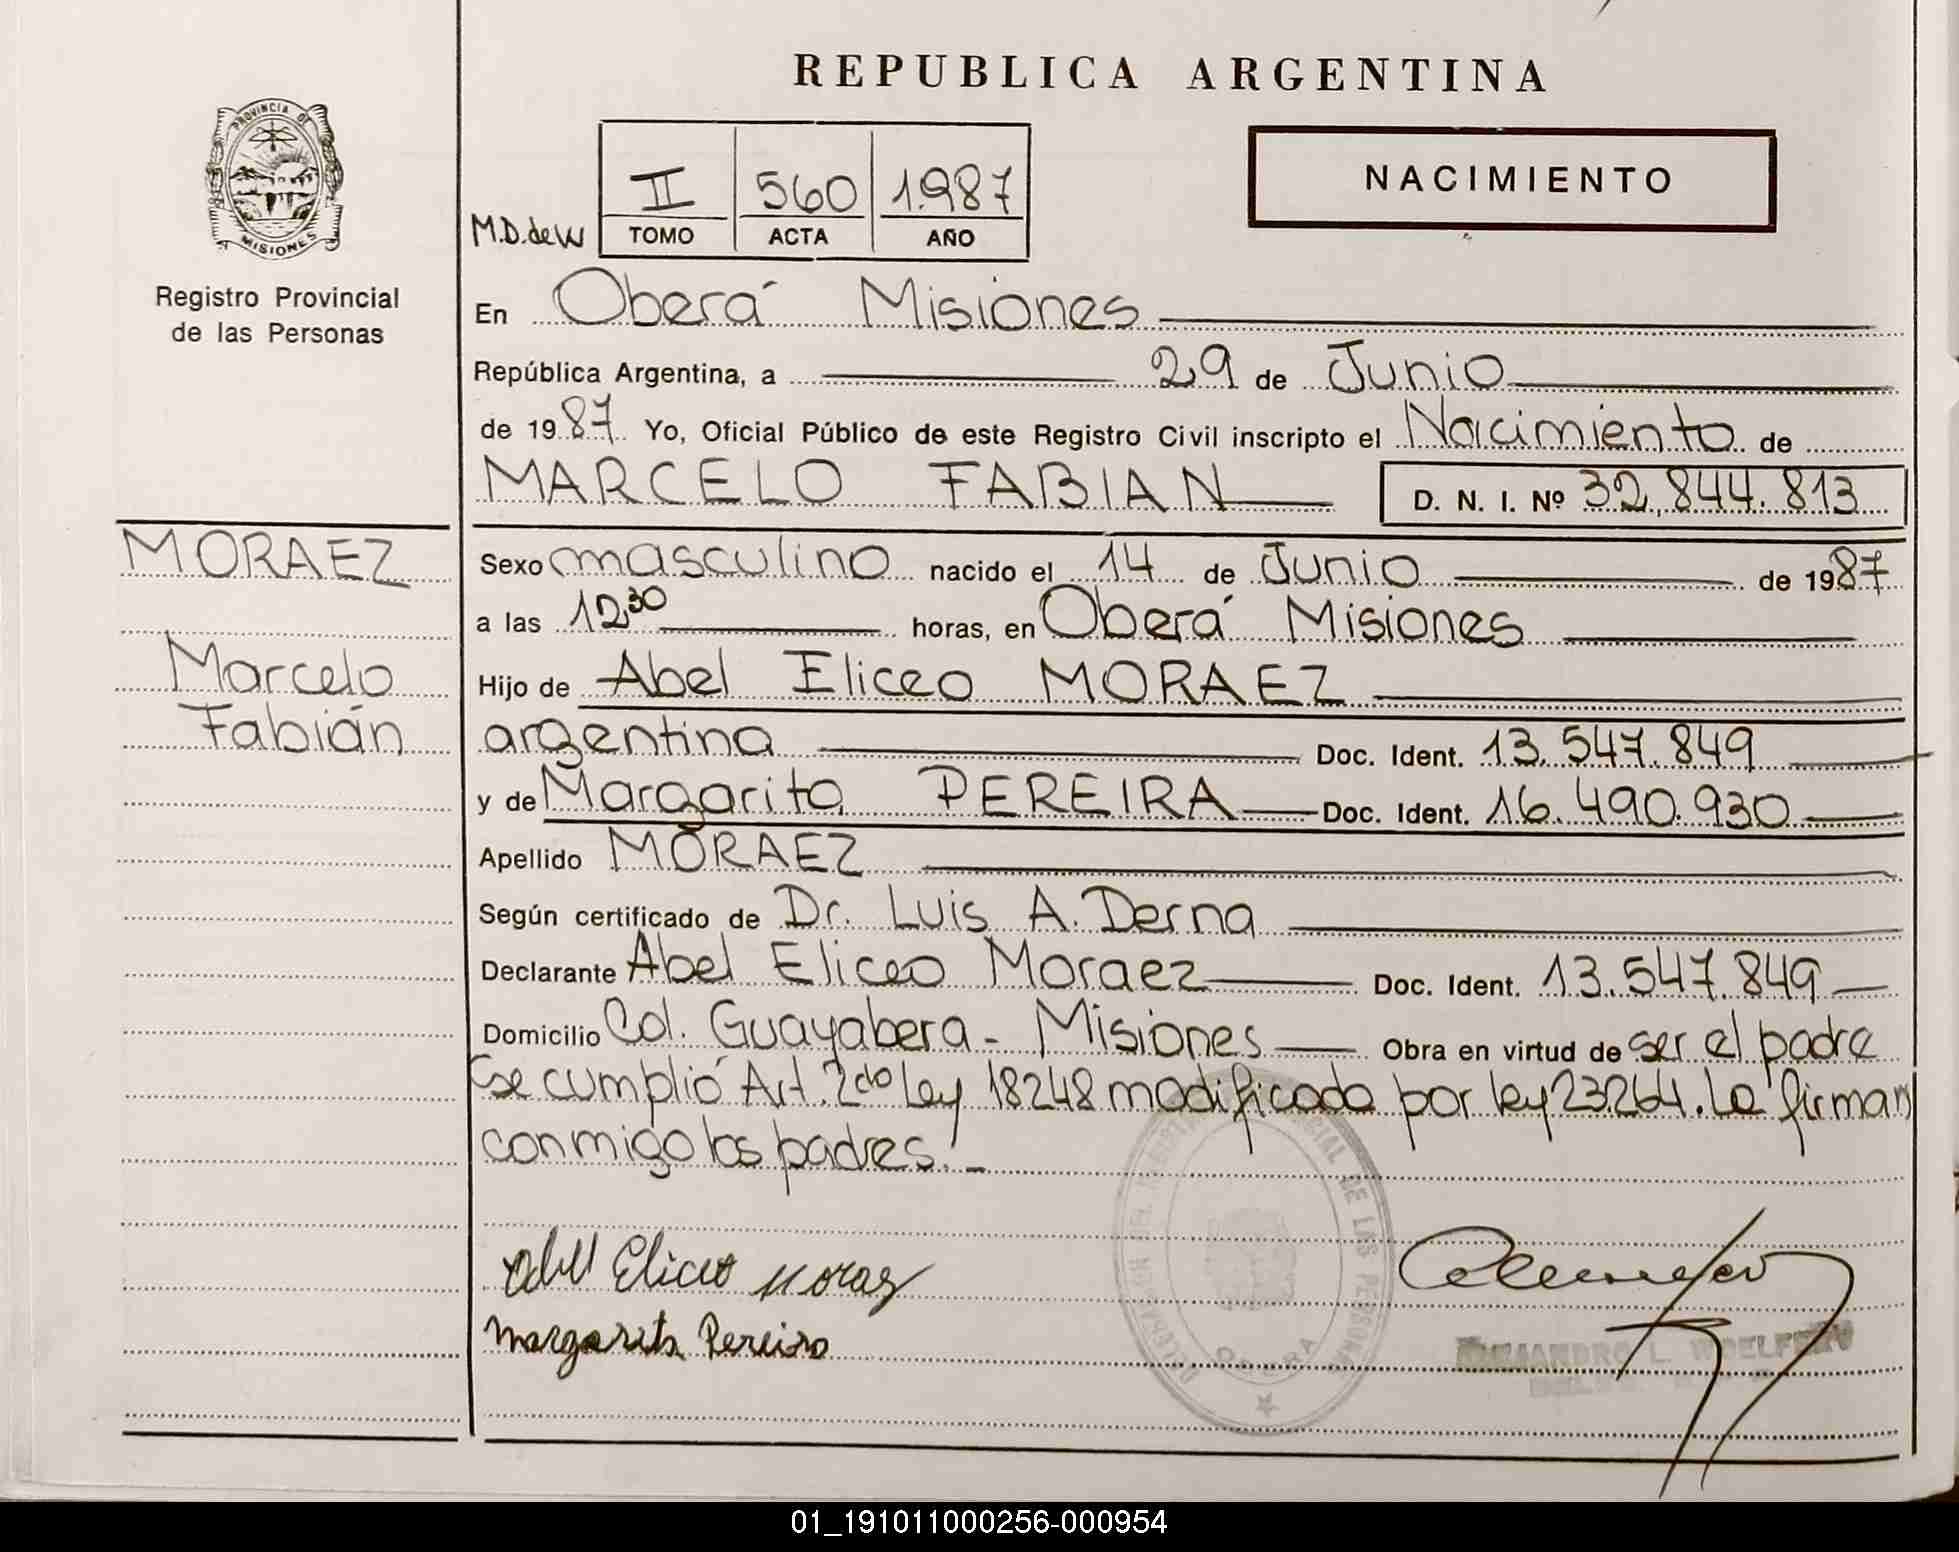 REPUBLICA ARGENTINA
PROVINCIA DE
MISIONES
Registro Provincial
de las Personas
NACIMIENTO
II 560 1.987
M.D. de W TOMO ACTA AÑO
En Oberá Misiones
República Argentina, a 29 de Junio
de 1987 Yo, Oficial Público de este Registro Civil inscripto el Nacimiento de
MARCELO FABIAN D. N. I. Nº 32.844.813
MORAEZ
Marcelo
Fabián
Sexo masculino nacido el 14 de Junio de 1987
a las 12,30 horas, en Oberá Misiones
Hijo de Abel Eliceo MORAEZ
argentina Doc. Ident. 13.547.849
y de Margarita PEREIRA Doc. Ident. 16.490.930
Apellido MORAEZ
Según certificado de Dr. Luis A. Derna
Declarante Abel Eliceo Moraez Doc. Ident. 13.547.849
Domicilio Col. Guayabera - Misiones Obra en virtud de ser el padre
Se cumplió Art. 2do Ley 18248 modificada por ley 23.264. La firman
conmigo los padres.-
Abel Eliceo Moraez
Margarita Pereira
DELEGACION DEL PROVINCIAL DE LAS PERSONAS
OBERA
01_191011000256-000954